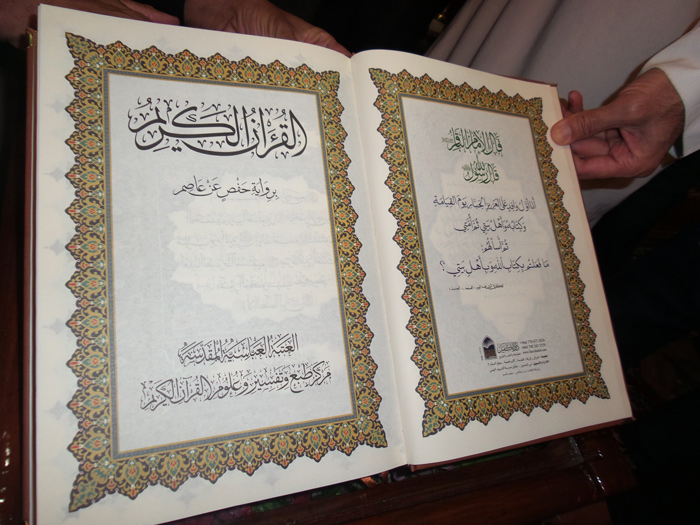 القرآن الكريم
برواية حفص عن عاصم
العتبة العباسية المقدسة
مركز طبع وتفسير وعلوم القرآن الكريم
قال الإمام الباقر
قال رسول الله
أنا أول وافد على العزيز الجبار يوم القيامة
وكتابه وأهل بيتي ثم أمتي
ثم أسألهم:
ما فعلتم بكتاب الله وبأهل بيتي؟